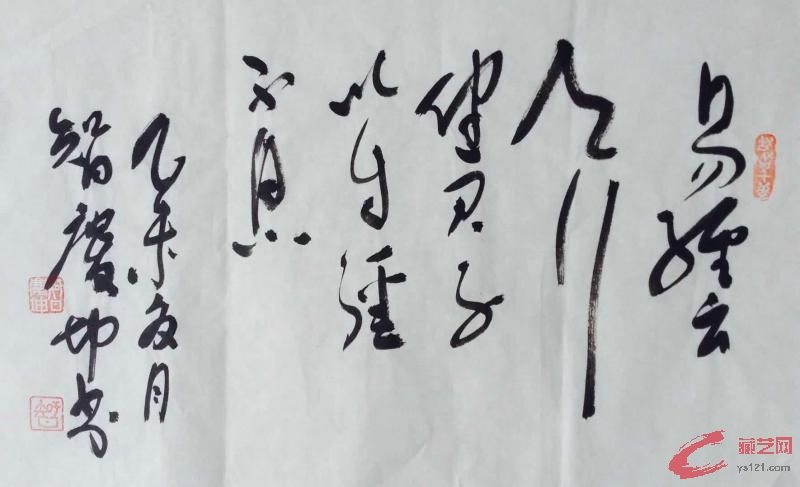 易經云
天行
健君子
以自強
不息
乙未夏月
智慶坤书
藏艺网
ys121.com